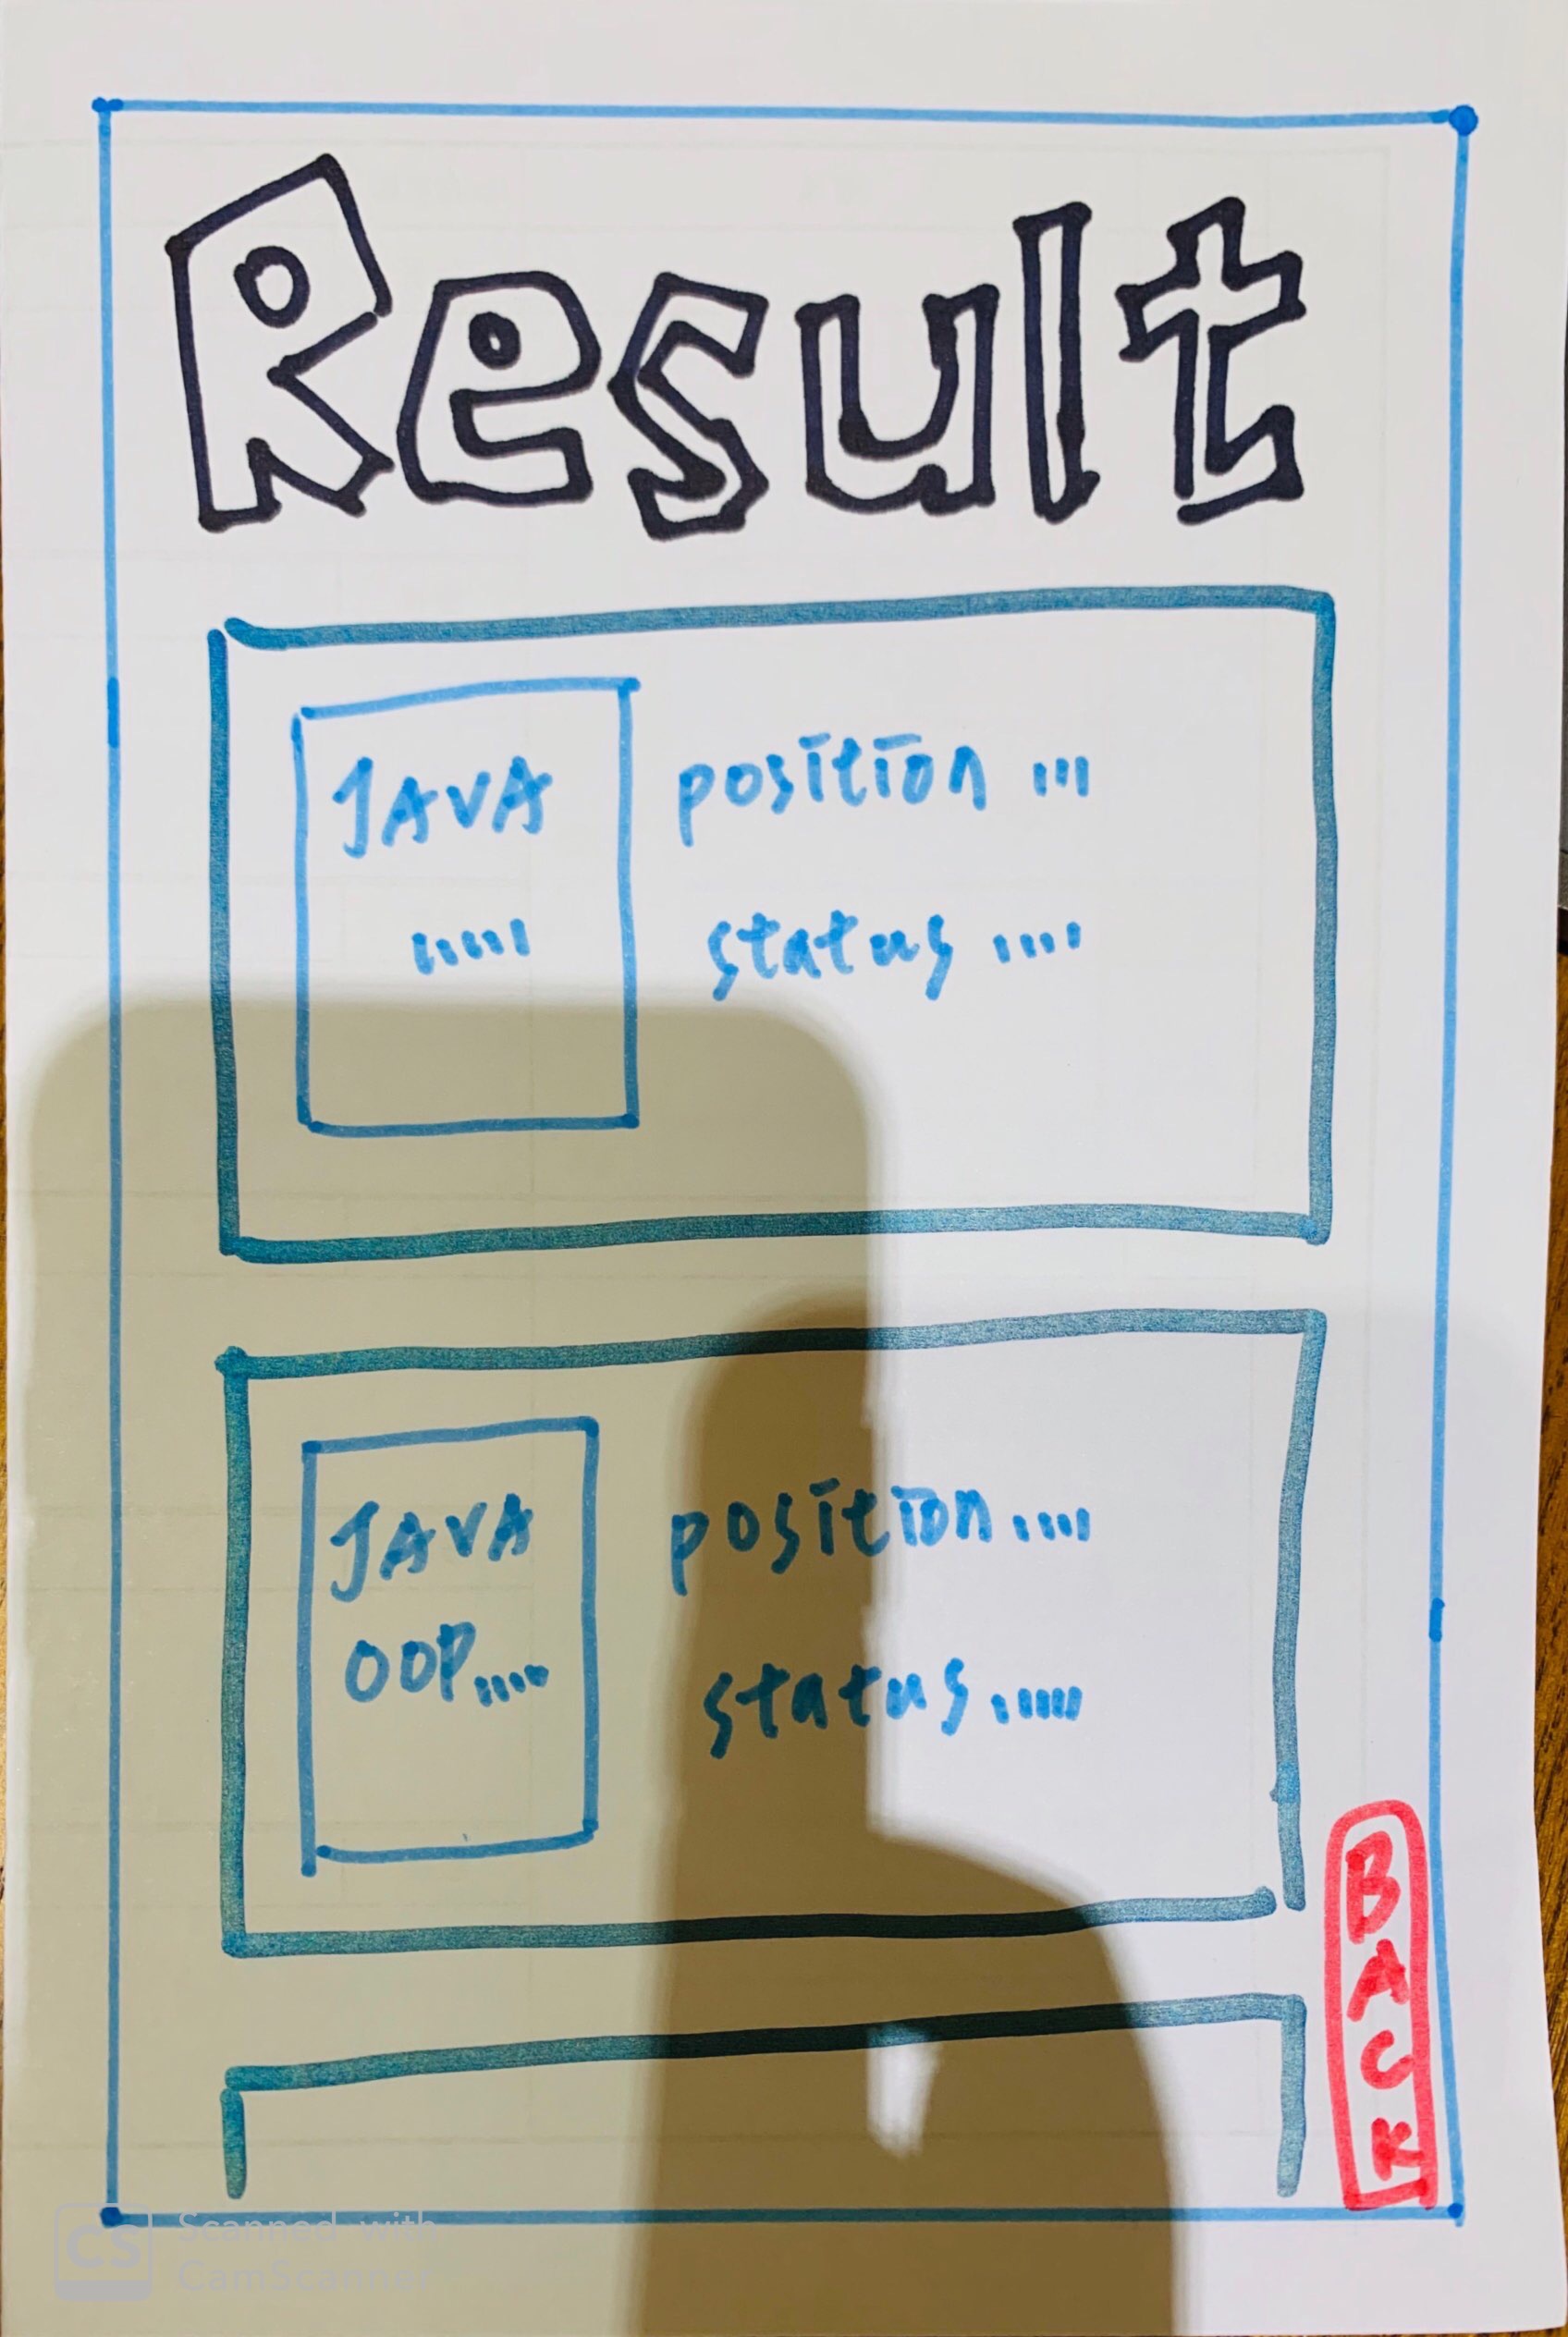 Result
JAVA
.....
position ...
status ....
JAVA
OOP....
position ....
status .....
BACK
CS Scanned with
CamScanner